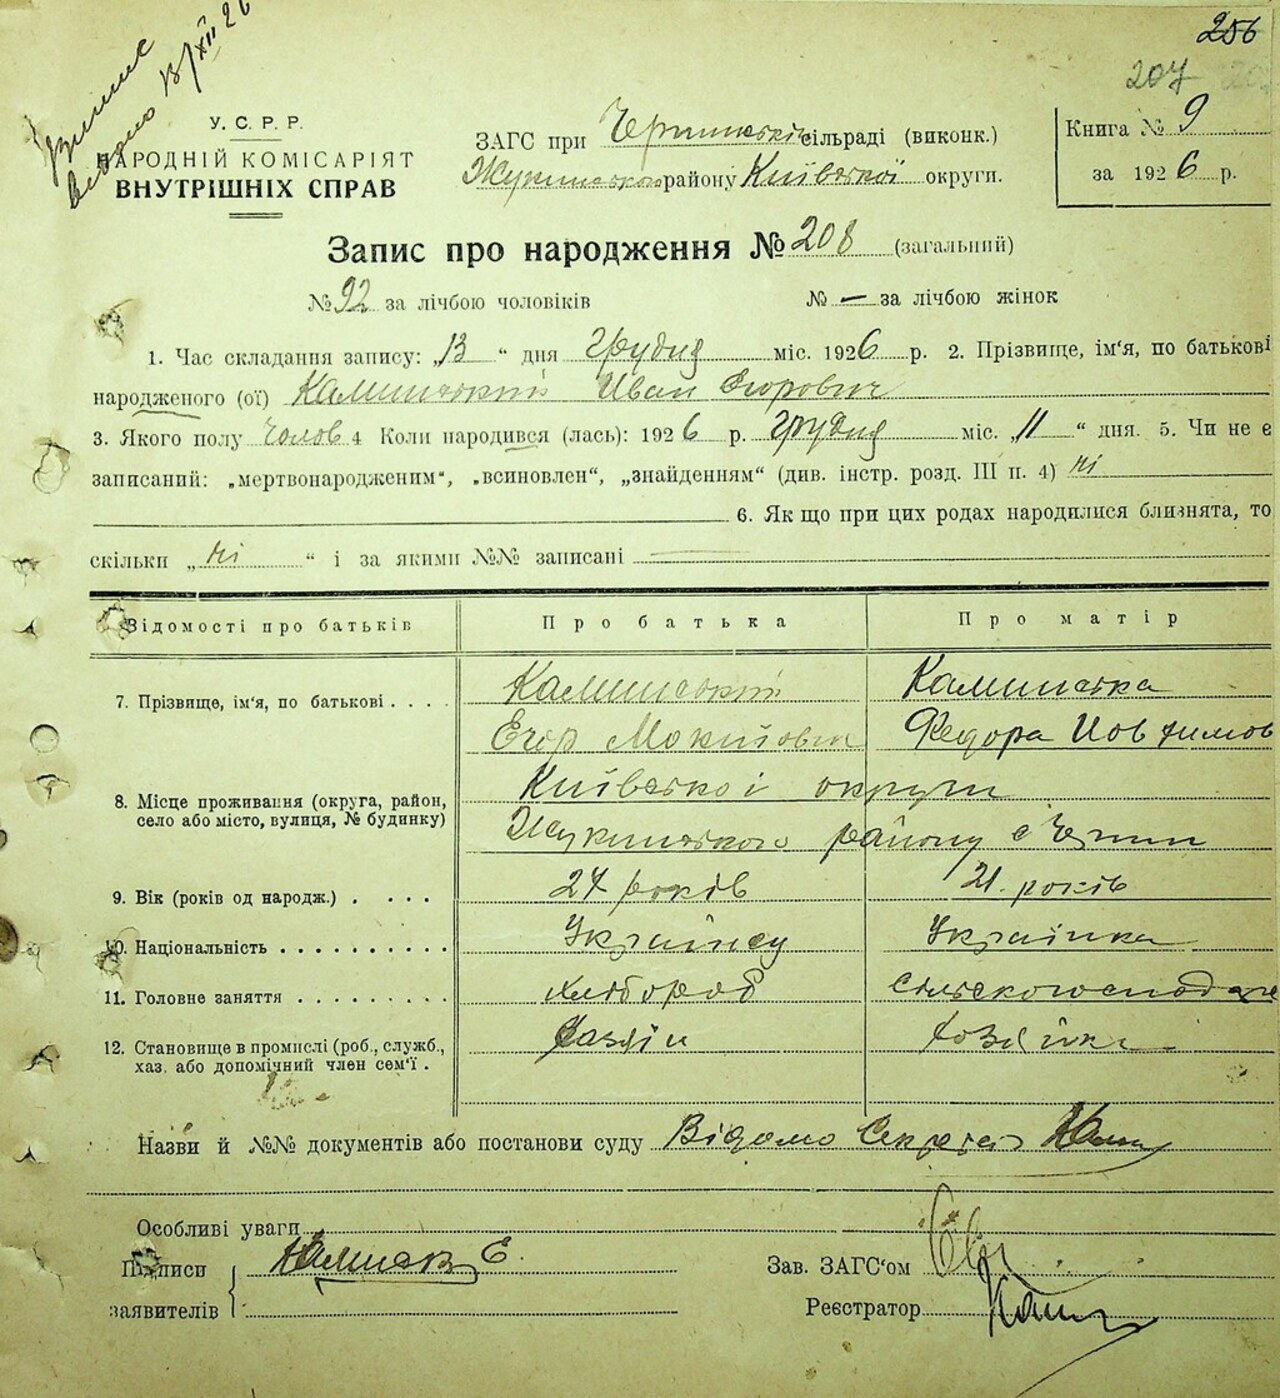 256
207
Виписс
видано 13/XII 26
У. С. Р. Р.
НАРОДНІЙ КОМІСАРІЯТ
ВНУТРІШНІХ СПРАВ
ЗАГС при сільраді (виконк.)
Жукинського району Київської округи.
Книга № 9
за 1926 р.
Запис про народження № 208 (загальний)
№ 92 за лічбою чоловіків № — за лічбою жінок
1. Час складання запису: „13“ дня Грудня міс. 1926 р. 2. Прізвище, ім'я, по батькові
народженого (ої) Калинський Иван Егорович
3. Якого полу чолов 4 Коли народився (лась): 1926 р. грудня міс. „11“ дня. 5. Чи не є
записаний: „мертвонародженим“, „всиновлен“, „знайденням“ (див. інстр. розд. III п. 4) ні
6. Як що при цих родах народилися близнята, то
скільки „ні“ і за якими №№ записані
Відомості про батьків Про батька Про матір
7. Прізвище, ім'я, по батькові . . . . Калинський Калинська
Егор Мокийович Федора Иовтимов
8. Місце проживання (округа, район,
село або місто, вулиця, № будинку)
Київської округи
Жукинського району с
9. Вік (років од народж.) . . . . 24 років 21. років
10. Національність . . . . . . . . . . Українец Українка
11. Головне заняття . . . . . . . . . хлібороб
12. Становище в промислі (роб., служб.,
хаз. або допомічний член сем'ї .
Хазяін хозяйка
Назви й №№ документів або постанови суду Відомо Секретар
Особливі уваги
Підписи Калинск Е.
заявителів
Зав. ЗАГС'ом
Реєстратор